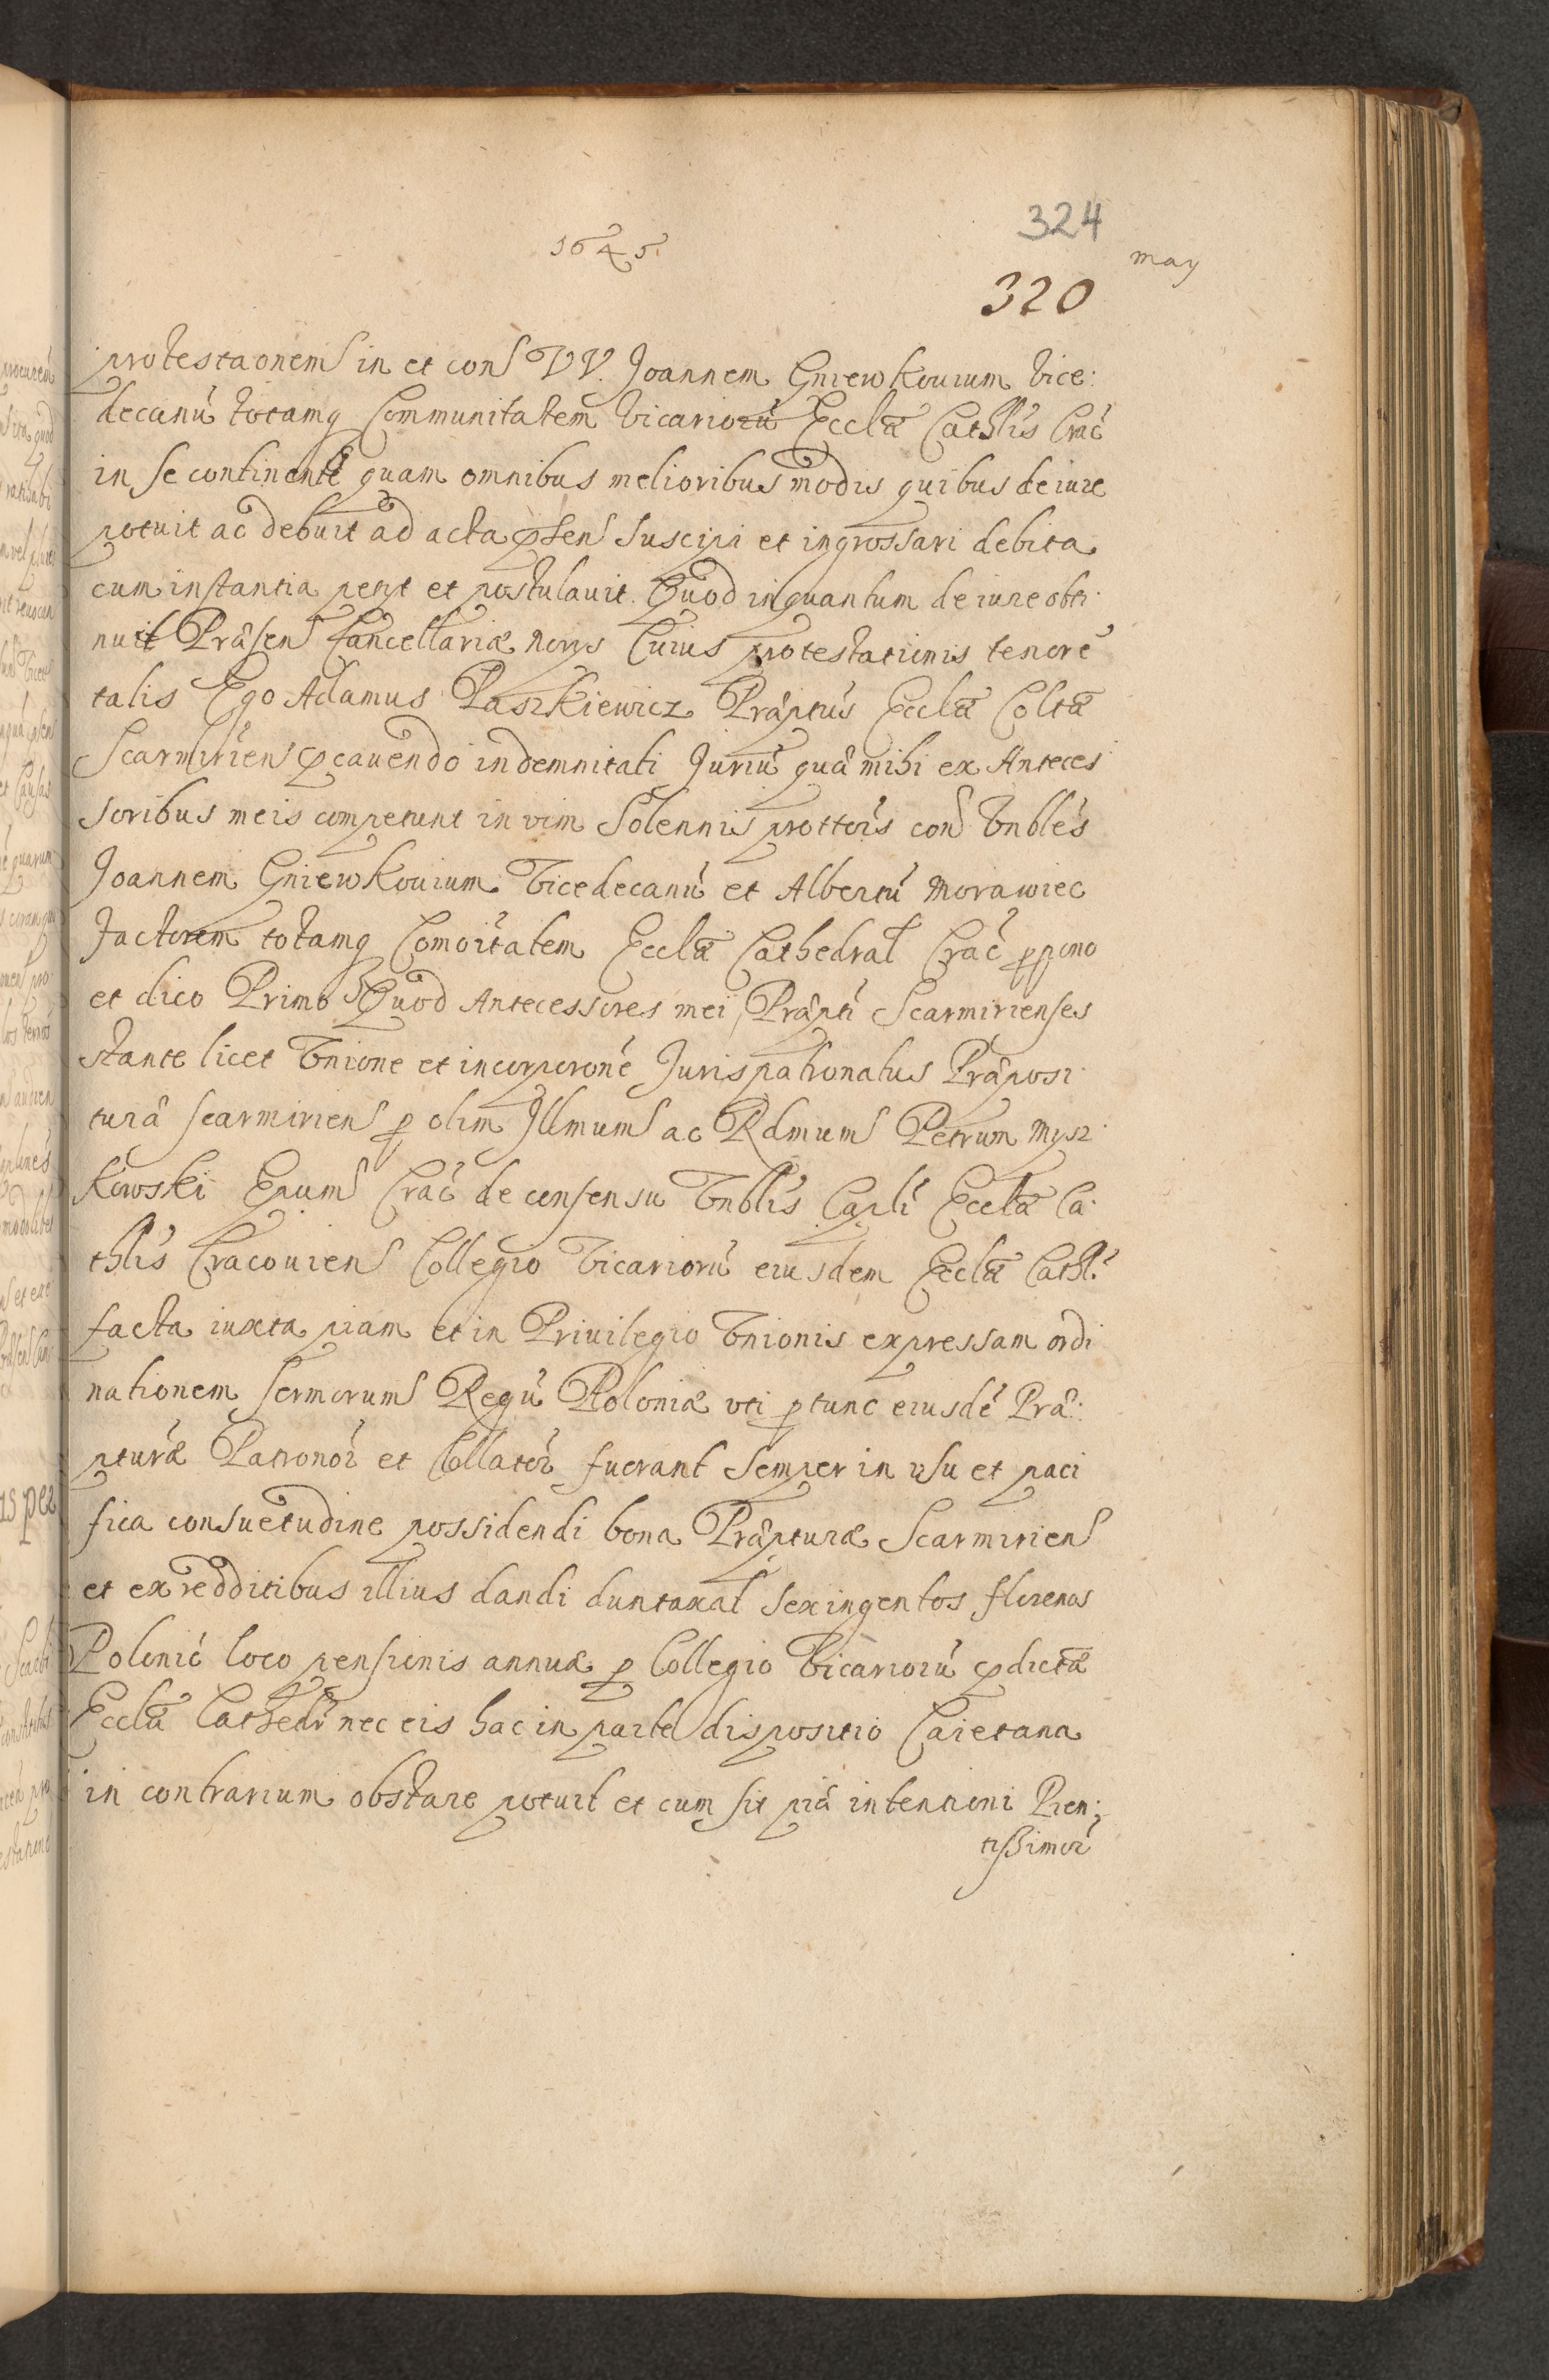 324
1645
may
320
protestaonem in et con VV. Joannem Gniewkouium Vice:
decanú totamq Communitatem Vicariorú Ecclæ Cathlis Crac
in se continentē quam omnibus melioribus modis quibus de iure
potuit ac debuit ad acta pñsen suscipi et ingrossari debita
cum instantia petyt et postulauit. Quod inquantum de iure obti
nuit Præsen Cancellariæ norys Cuius protestationis tenore
talis Ego Adamus Paszkiewicz Præptus Ecclæ Coltæ
Scarmirien præcauendo indemnitati Juriú quæ mihi ex Anteces
soribus meis competunt in vim Solennis prottois con Vnbles
Joannem Gniewkouium Vicedecanú et Albertú Morawiec
Factorem totamq Comoitatem Ecclæ Cathedral Crac ppono
et dico Primo Quod Antecessores mei Præpti Scarmirienses
stante licet Vnione et incorporone Jurispatronatus Præposi
turæ scarmirien p olim Illmum ac Rdmum Petrum Mysz
kowski Epum Crac de consensu Vnblis Capli Ecclæ Ca
thlis Cracouien Collegio Vicariorú eiusdem Ecclæ Cathl.
facta iuxta piam et in Priuilegio Vnionis expressam ordi
nationem sermorum Regú Poloniæ vti p tunc eiusdé Præ:
pturæ Patronor et Collator fuerant semper in vsu et paci
fica consuetudine possidendi bona Præpturæ Scarmirien
et ex redditibus illius dandi duntaxat sexingentos florenos
Polonic loco pensionis annuæ p Collegio Vicariorú prædictæ
Ecclæ Cathedr nec eis hac in parte dispositio Caietana
in contrarium obstare potuit et cum sit piæ intentioni Pien:
tissimor